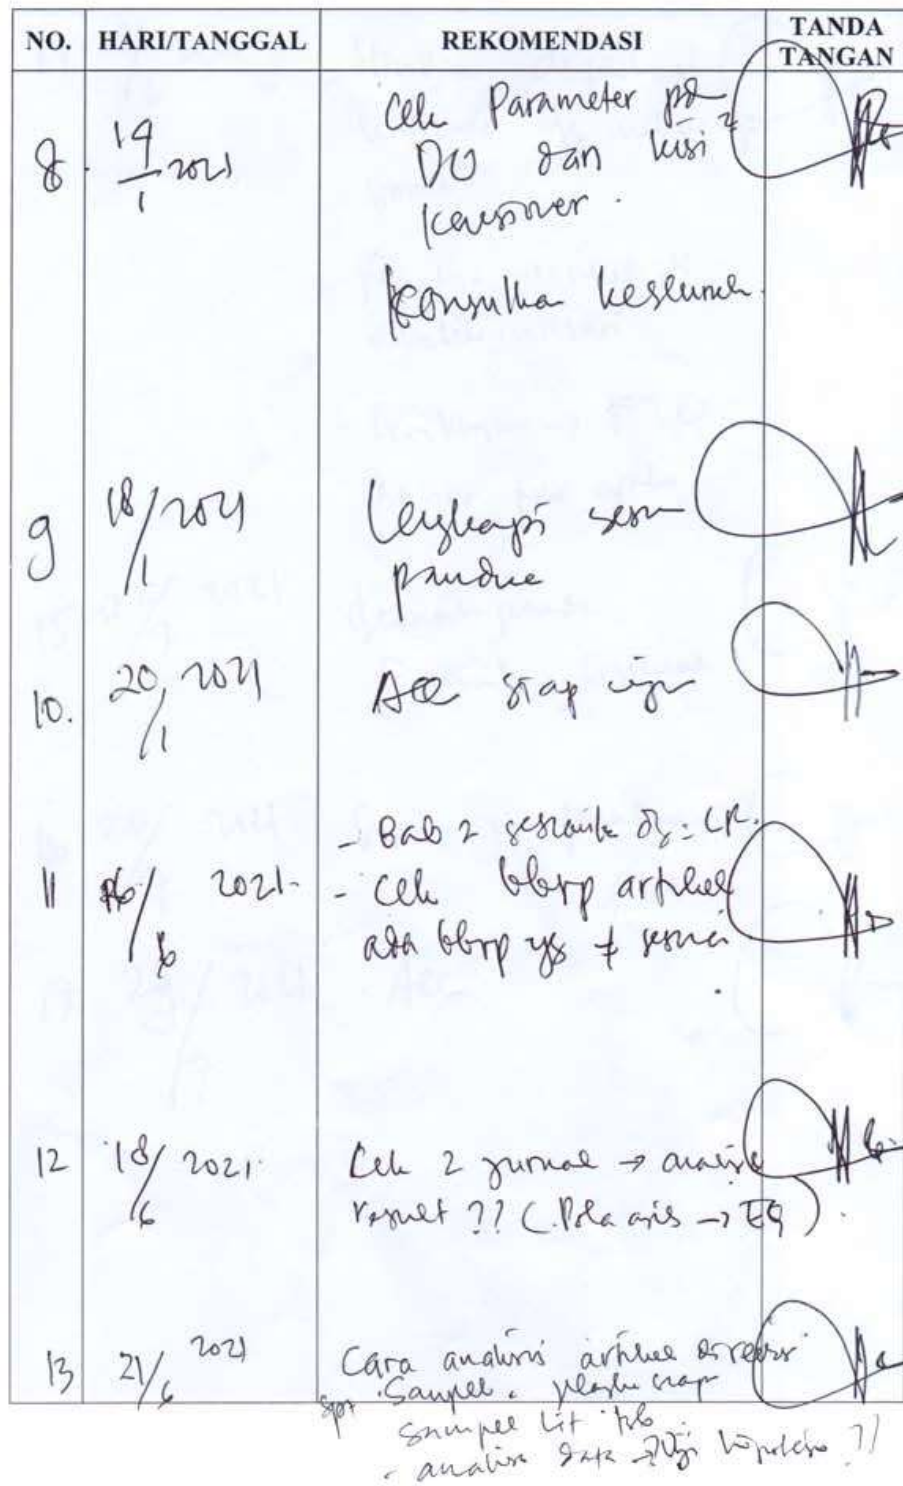 NO. HARI/TANGGAL REKOMENDASI TANDA TANGAN
8. 14/1 2021 Cek Parameter pd
DO dan kisi²
kuesioner.
Konsulkan keseluruh
9 18/1 2021 Lengkapi sesuai
panduan
10. 20/1 2021 Acc siap ujian
11 16/6 2021. - Bab 2 sesuaikan dg: LR.
- Cek bbrp artikel
ada bbrp yg ≠ sesuai
12 18/6 2021. Cek 2 jurnal → analisis
result ?? (Pola asuh → EQ).
13 21/6 2021 Cara analisis artikel direvisi
spt Sampel.
Sampel Lit tsb
- analisa data → Uji hipotesa ??